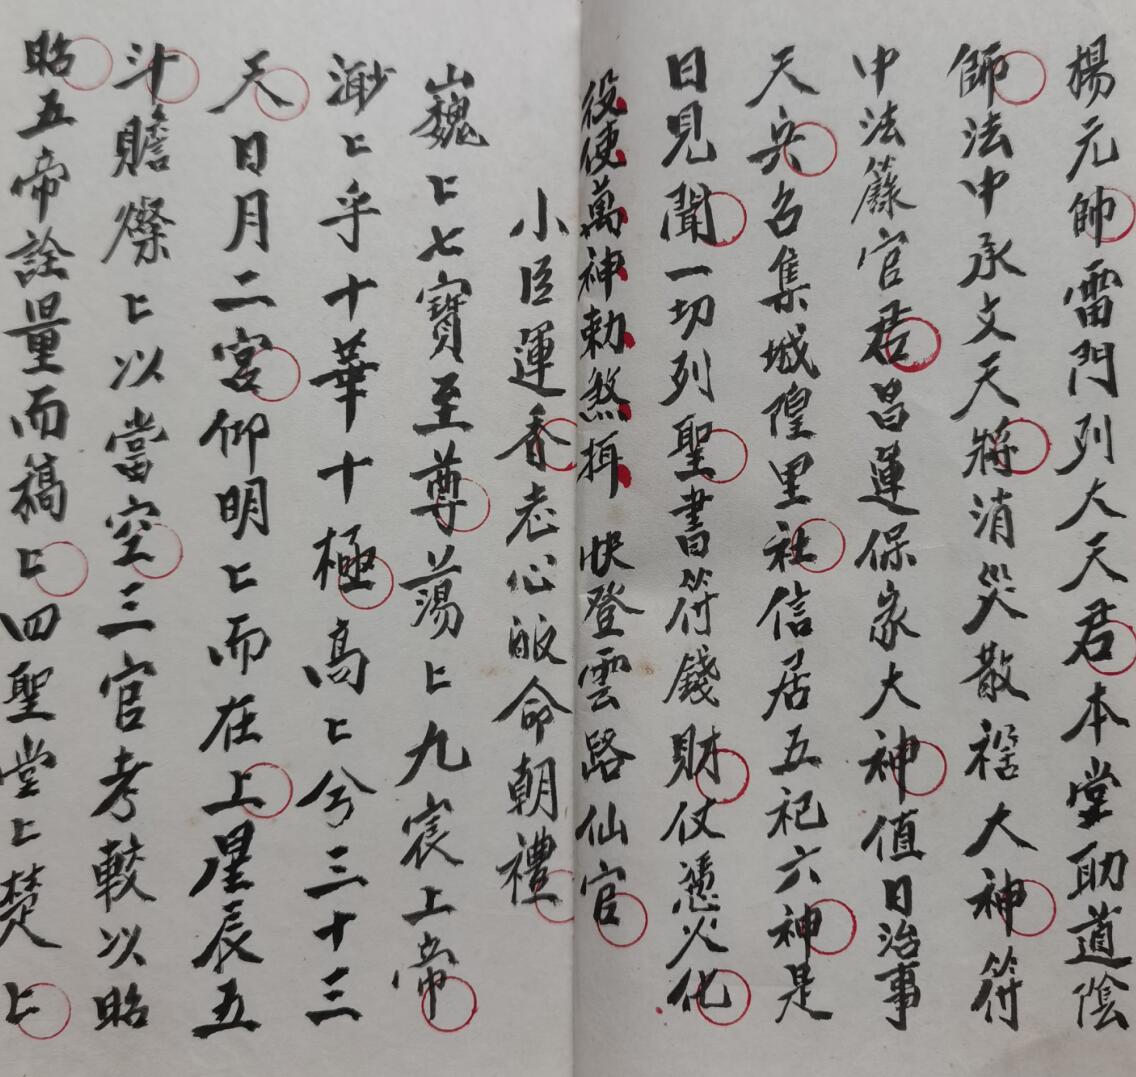 楊元帥雷門列大天君本堂助道陰
師法中承文天將消災散禍大神符
中法籙官君昌運保家大神值日治事
天兵名集城隍里社信居五祀六神是
日見聞一切列聖書符錢財仗憑火化
役使萬神勅煞揖 快登雲路仙官
小臣運香志心皈命朝禮
巍〻七寶至尊蕩〻九宸上帝
渺〻乎十華十極高〻兮三十三
天日月二宮仰明〻而在上星辰五
斗瞻燦〻以當空三官考較以昭
昭五帝詮量而稿〻四聖堂〻焚〻